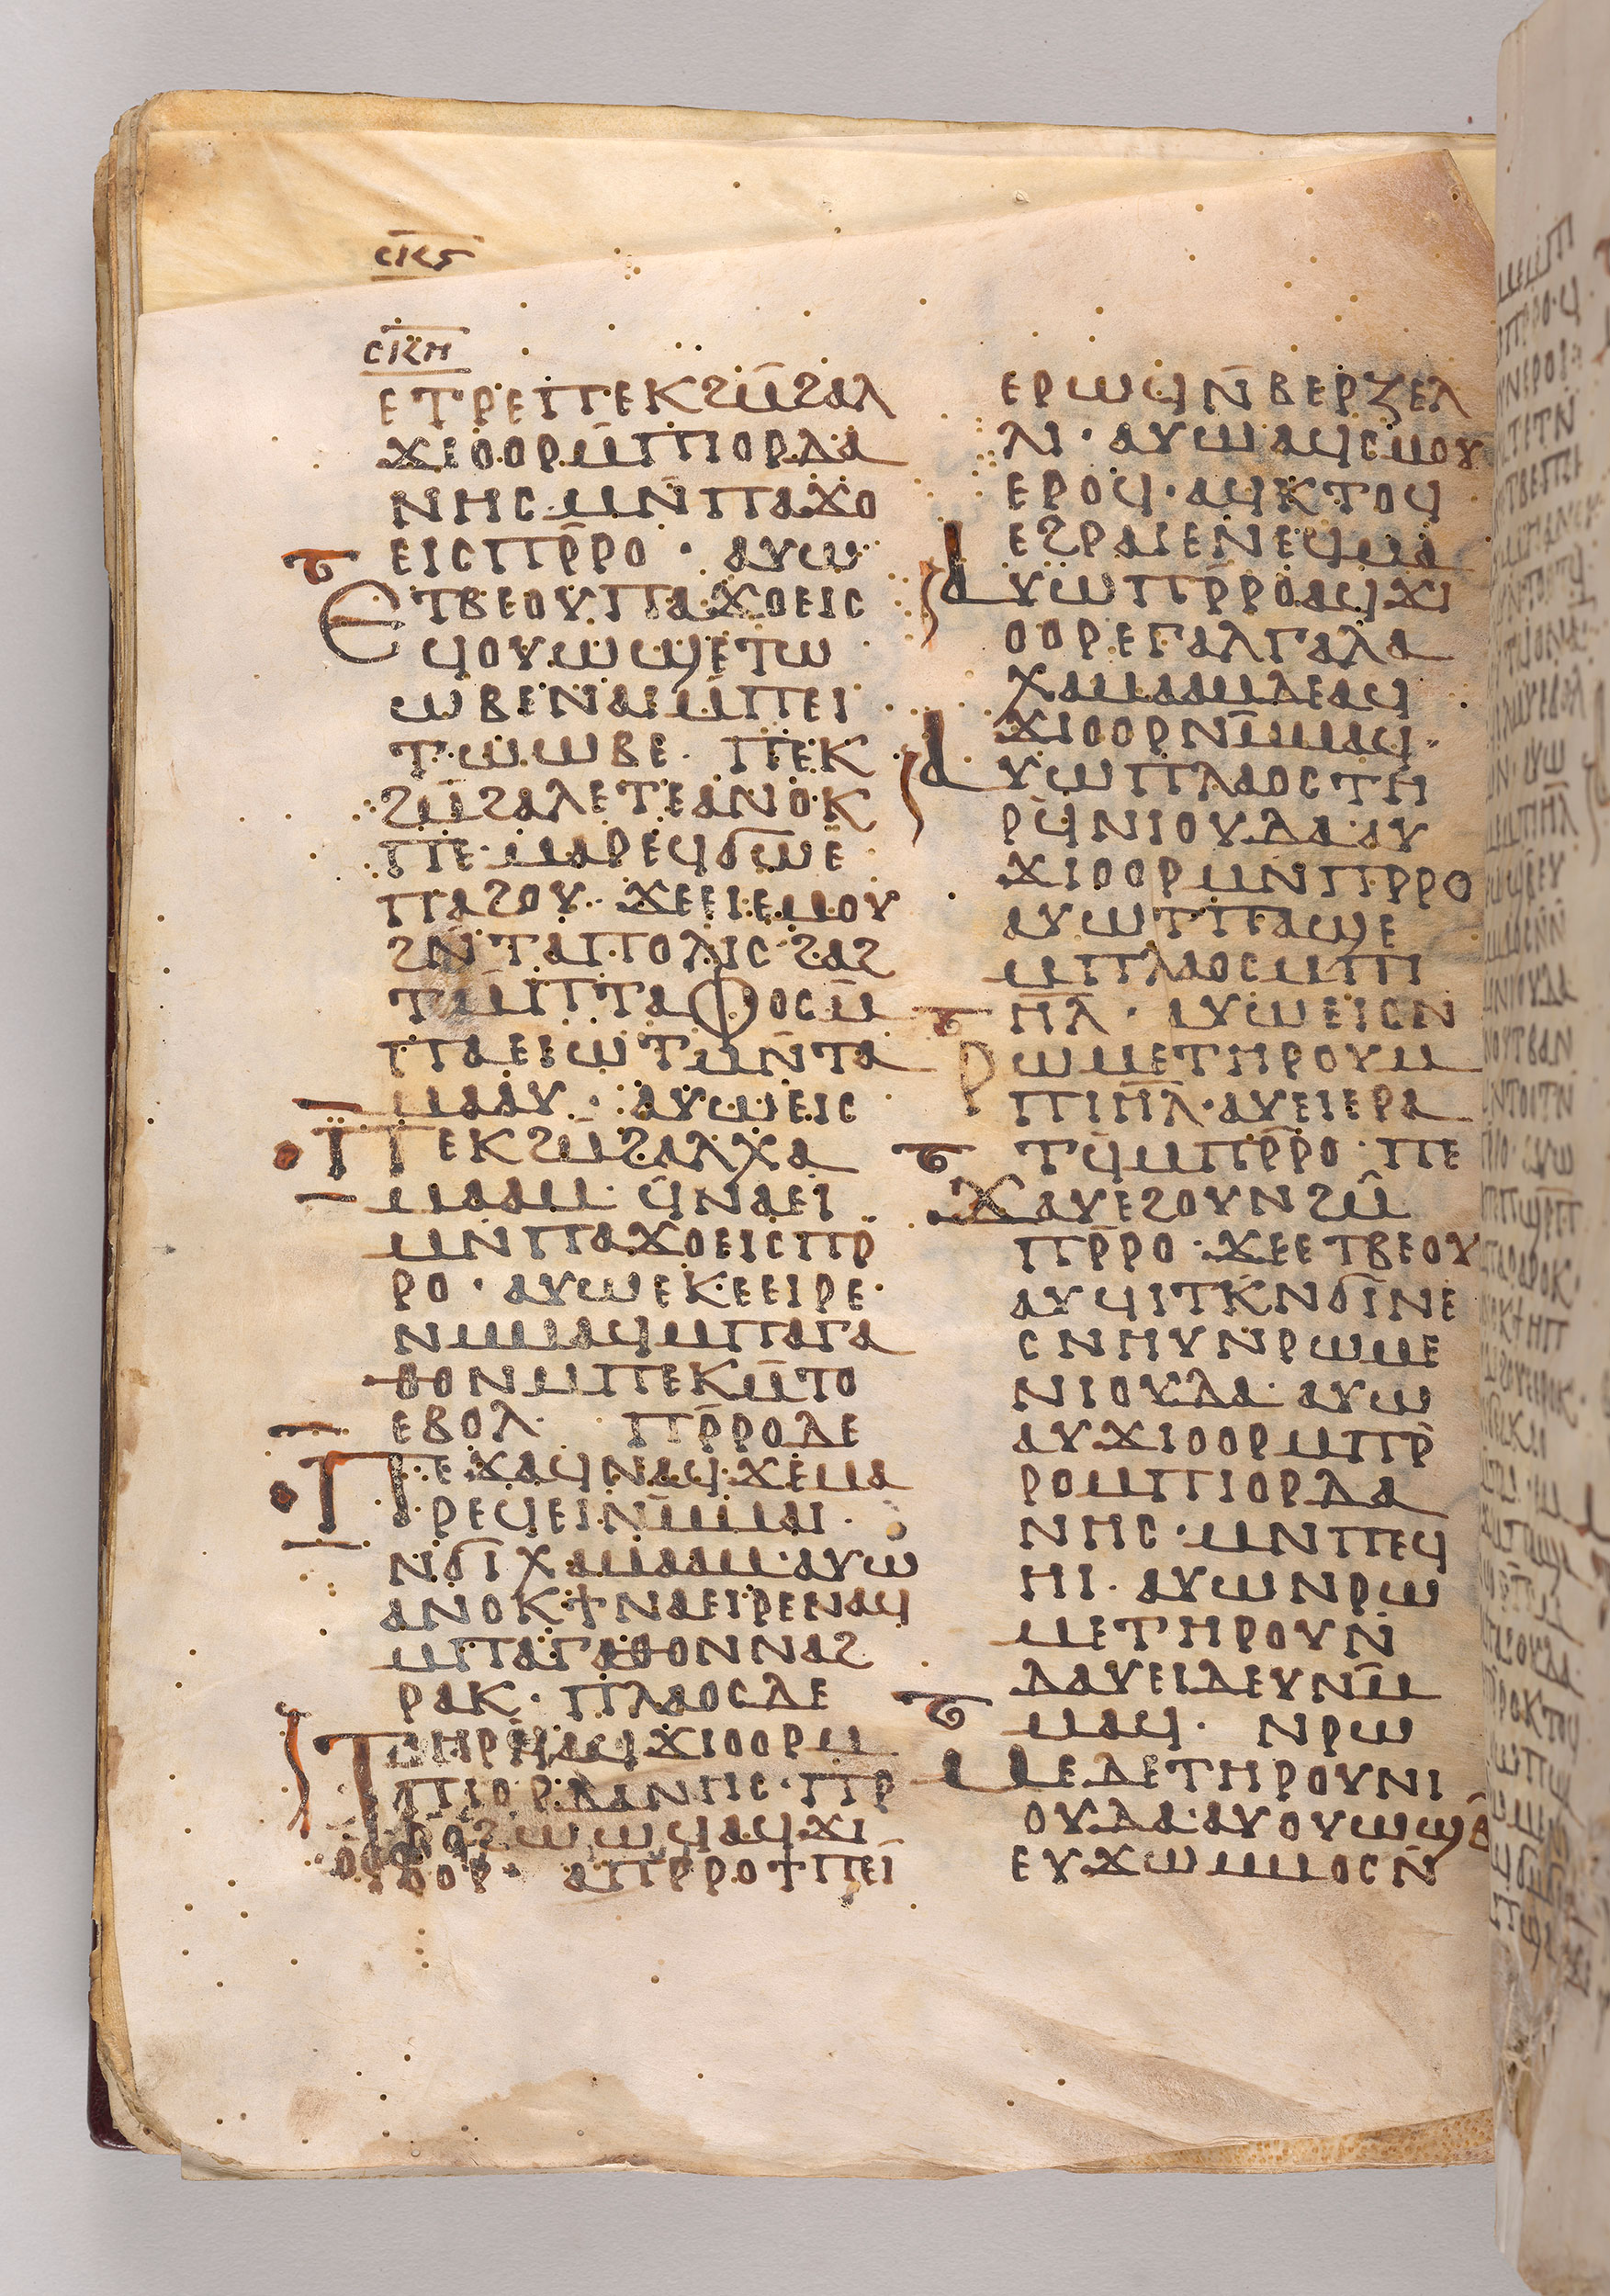 ⲥⲕⲋ
ⲥⲕⲏ
ⲉⲧⲣⲉⲡⲉⲕϩⲙ̅ϩⲁⲗ
ϫⲓⲟⲟⲣⲙ̅ⲡⲓⲟⲣⲇⲁ
ⲛⲏⲥ ⲙⲛ̅ⲡⲁϫⲟ
ⲉⲓⲥⲡⲣ̅ⲣⲟ · ⲁⲩⲱ
ⲉⲧⲃⲉⲟⲩⲡⲁϫⲟⲉⲓⲥ
ϥⲟⲩⲱϣⲉⲧⲱ
ⲱⲃⲉⲛⲁⲓⲙ̅ⲡⲉⲓ
ⲧⲱⲱⲃⲉ· ⲡⲉⲕ
ϩⲙ̅ϩⲁⲗⲉⲧⲉⲁⲛⲟⲕ
ⲡⲉ· ⲙⲁⲣⲉϥϭⲱⲉ
ⲡⲁϩⲟⲩ· ϫⲉⲉⲓⲉⲙⲟⲩ
ϩⲛ̅ⲧⲁⲡⲟⲗⲓⲥ ϩⲁϩ
ⲧⲙ̅ⲡⲧⲁⲫⲟⲥⲙ̅
ⲡⲁⲉⲓⲱⲧⲙⲛ̅ⲧⲁ
ⲙⲁⲁⲩ · ⲁⲩⲱⲉⲓⲥ
ⲡⲉⲕϩⲙ̅ϩⲁⲗⲭⲁ
ⲙⲁⲁⲙ· ϥⲛⲁⲉⲓ
ⲙⲛⲡⲁϫⲟⲉⲓⲥⲡⲣ
ⲣⲟ · ⲁⲩⲱⲉⲕⲉⲉⲓⲣⲉ·
ⲛⲙⲙⲁϥⲙⲡⲁⲅⲁ
ⲑⲟⲛⲙⲡⲉⲕⲙ̅ⲧⲟ
ⲉⲃⲟⲗ· ⲡⲣ̅ⲣⲟⲇⲉ
ⲡⲉϫⲁϥⲛⲁϥ·ϫⲉⲙⲁ
ⲣⲉϥⲉⲓⲛⲙ̅ⲙⲁⲓ·
ⲛϭⲓⲭⲁⲙⲁⲁⲙ·ⲁⲩⲱ
ⲁⲛⲟⲕϯⲛⲁⲉⲓⲣⲉⲛⲁϥ
ⲙⲡⲁⲅⲁⲑⲟⲛⲛⲁϩ
ⲣⲁⲕ· ⲡⲗⲁⲟⲥⲇⲉ
ⲧⲏⲣϥⲁϥϫⲓⲟⲟⲣⲙ
ⲡⲓⲟⲣⲇⲁⲛⲏⲥ·ⲡⲣ
ⲣⲟϩⲱⲱϥⲁϥϫⲓ
ⲟⲟⲣ· ⲁⲡⲣⲣⲟϯⲡⲉⲓ
ⲉⲣⲱϥⲛ̅ⲃⲉⲣⲍⲉⲗ
ⲗⲓ· ⲁⲩⲱⲁϥⲥⲙⲟⲩ
ⲉⲣⲟϥ·ⲁϥⲕⲧⲟϥ
ⲉϩⲣⲁⲓⲉⲛⲉϥⲙⲁ
ⲁⲩⲱⲡⲣ̅ⲣⲟⲁϥϫⲓ
ⲟⲟⲣⲉⲅⲁⲗⲅⲁⲗⲁ
ⲭⲁⲙⲁⲁⲙⲇⲉⲁϥ
ϫⲓⲟⲟⲣⲛⲙ̅ⲙⲁϥ·
ⲁⲩⲱⲡⲗⲁⲟⲥⲧⲏ
ⲣϥⲛⲓⲟⲩⲇⲁ·ⲁⲩ
ϫⲓⲟⲟⲣⲙⲛⲡⲣⲣⲟ
ⲁⲩⲱⲧⲡⲁϣⲉ
ⲙⲡⲗⲁⲟⲥⲙⲡⲓ
ⲏ̅ⲗ̅ · ⲁⲩⲱⲉⲓⲥⲛ
ⲣⲱⲙⲉⲧⲏⲣⲟⲩⲙ
ⲡⲓⲏ̅ⲗ̅·ⲁⲩⲉⲓⲉⲣⲁ
ⲧϥⲙⲡⲣ̅ⲣⲟ·ⲡⲉ
ϫⲁⲩⲉϩⲟⲩⲛϩⲙ̅
ⲡⲣ̅ⲣⲟ·ϫⲉⲉⲧⲃⲉⲟⲩ
ⲁⲩϥⲓⲧⲕ̅ⲛϭⲓⲛⲉ
ⲥⲛⲏⲩⲛ̅ⲣⲱⲙⲉ
ⲛⲓⲟⲩⲇⲁ· ⲁⲩⲱ
ⲁⲩϫⲓⲟⲟⲣⲙⲡⲣ̅
ⲣⲟⲙⲡⲓⲟⲣⲇⲁ
ⲛⲏⲥ·ⲙⲛⲡⲉϥ
ⲏⲓ· ⲁⲩⲱⲛⲣⲱ
ⲙⲉⲧⲏⲣⲟⲩⲛ̅
ⲇⲁⲩⲉⲓⲇⲉⲩⲛⲙ̅
ⲙⲁϥ· ⲛⲣⲱ
ⲙⲉⲇⲉⲧⲏⲣⲟⲩⲛⲓ
ⲟⲩⲇⲁ·ⲁⲩⲟⲩⲱϣⲃ̅
ⲉⲩϫⲱⲙⲙⲟⲥⲛ̅